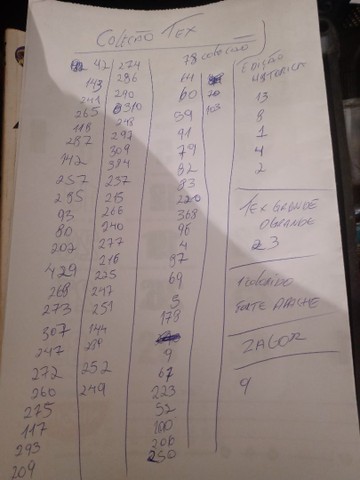 COLEÇÃO TEX
42
143
241
265
118
287
142
257
295
93
80
207
429
268
273
307
247
272
260
275
117
293
209
274
286
290
310
248
297
309
394
237
215
266
240
277
216
225
247
251
144
299
252
249
78 COLEÇÃO
14
60
39
91
79
82
83
220
368
96
4
97
69
5
179
9
67
223
52
100
200
250
EDIÇÃO
HISTORICA
13
8
1
4
2
TEX GRANDE
23
FORTE APACHE
ZAGOR
9